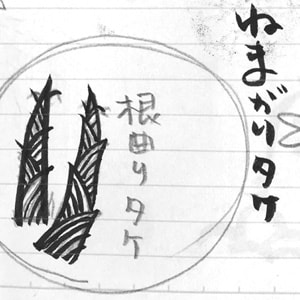 ねまがりタケ
根曲りタケ